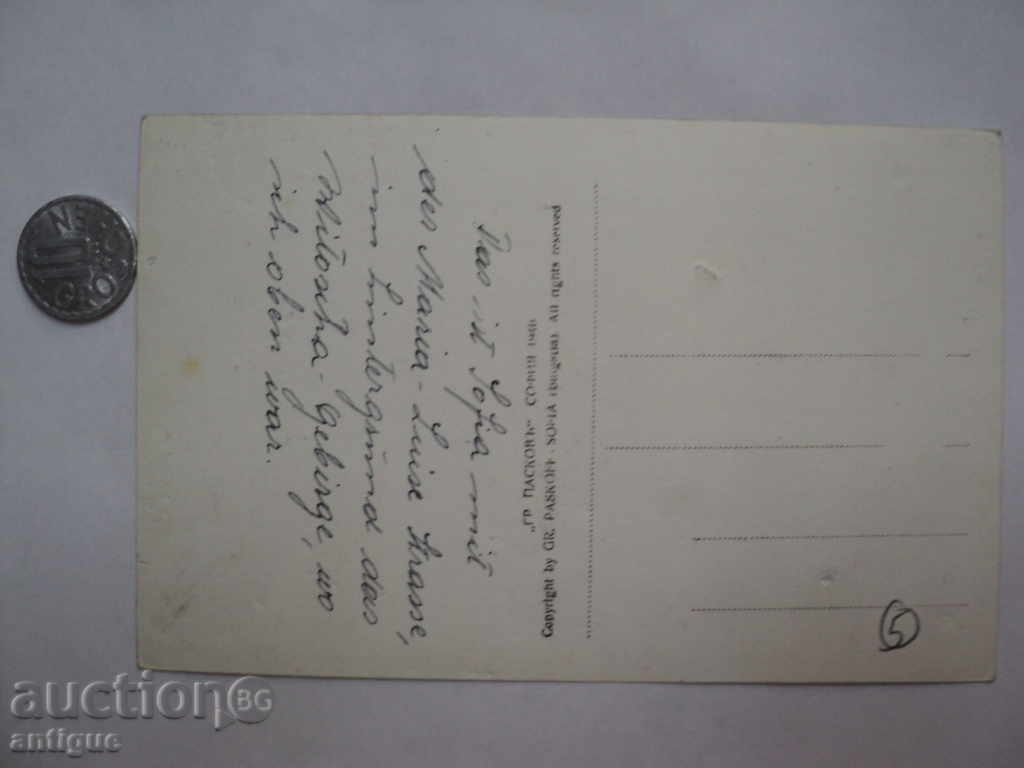 Das ist Sofia mit
der Maria-Luise Strasse,
im Hintergrund das
Witoscha-Gebirge, wo
ich oben war.
„ГР ПАСКОВЪ" СОФИЯ
Copyright by GR. PASKOFF - SOFIA (Bulgaria). All rights reserved
5
10
GRO
auctionBG
antique